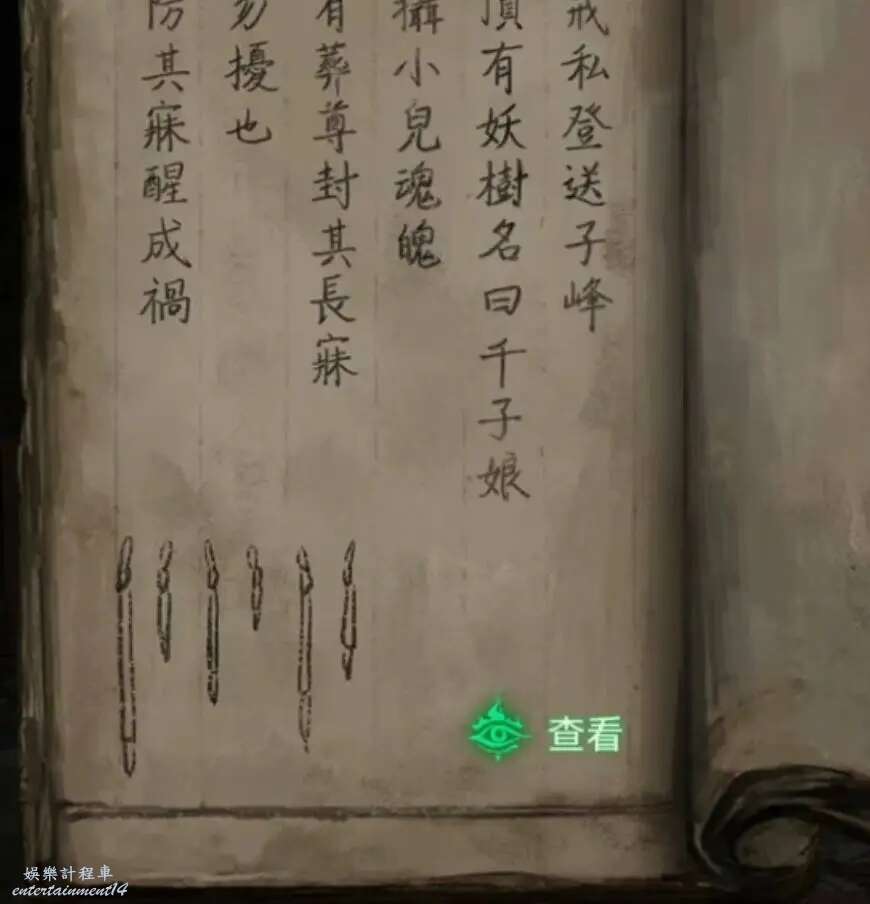 戒私登送子峰
頂有妖樹名曰千子娘
攝小兒魂魄
有葬尊封其長寐
勿擾也
防其寐醒成禍
查看
娛樂計程車
entertainment14